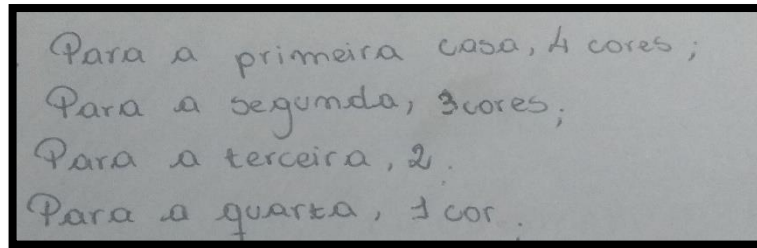 Para a primeira casa, 4 cores;
Para a segunda, 3 cores;
Para a terceira, 2.
Para a quarta, 1 cor.